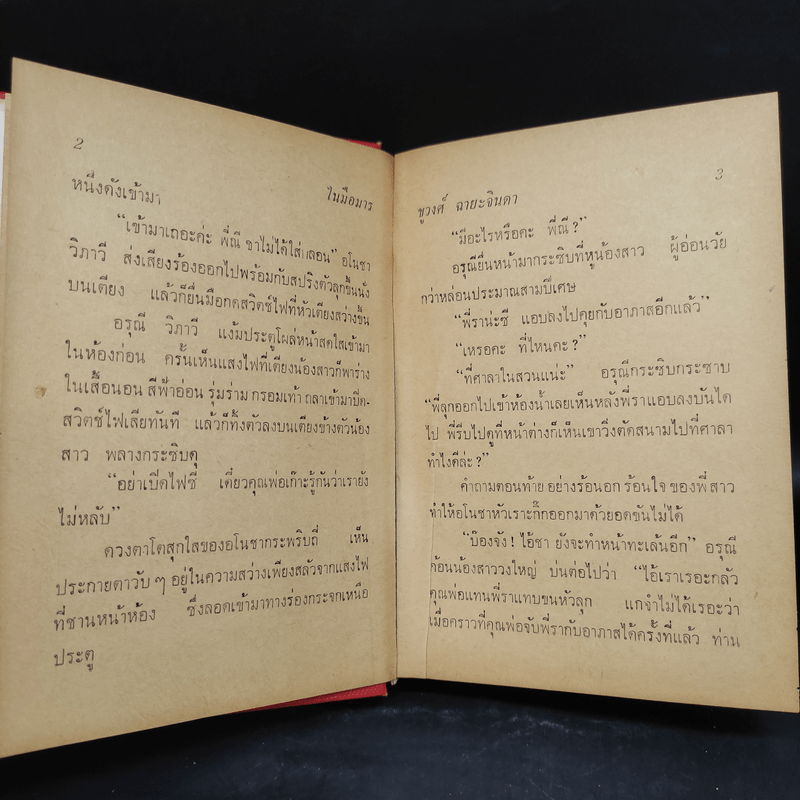 2
ในมือมาร
หนึ่งดังเข้ามา
“เข้ามาเถอะค่ะ พี่ณี ชาไม่ได้ใส่กลอน” อโนชา
วิภาวี ส่งเสียงร้องออกไปพร้อมกับสปริงตัวลุกขึ้นนั่ง
บนเตียง แล้วก็ยื่นมือกดสวิตช์ไฟที่หัวเตียงสว่างขึ้น
อรุณี วิภาวี แง้มประตูโผล่หน้าสดใสเข้ามา
ในห้องก่อน ครั้นเห็นแสงไฟที่เตียงน้องสาวก็พาร่าง
ในเสื้อนอน สีฟ้าอ่อน รุ่มร่าม กรอมเท้า ถลาเข้ามาปิด-
สวิตช์ไฟเสียทันที แล้วก็ทิ้งตัวลงบนเตียงข้างตัวน้อง
สาว พลางกระซิบดุ
“อย่าเปิดไฟซี่ เดี๋ยวคุณพ่อเก๊าะรู้กันว่าเรายัง
ไม่หลับ”
ดวงตาโตสุกใสของอโนชากระพริบถี่ เห็น
ประกายตาวับ ๆ อยู่ในความสว่างเพียงสลัวจากแสงไฟ
ที่ชานหน้าห้อง ซึ่งลอดเข้ามาทางร่องกระจกเหนือ
ประตู
3
ชูวงศ์ ฉายะจินดา
“มีอะไรหรือคะ พี่ณี?”
อรุณียื่นหน้ามากระซิบที่หูน้องสาว ผู้อ่อนวัย
กว่าหล่อนประมาณสามปีเศษ
“พี่ราน่ะซี แอบลงไปคุยกับอาภาสอีกแล้ว”
“เหรอคะ ที่ไหนคะ?”
“ที่ศาลาในสวนแน่ะ” อรุณีกระซิบกระซาบ
“พี่ลุกออกไปเข้าห้องน้ำเลยเห็นหลังพี่ราแอบลงบันได
ไป พี่รีบไปดูที่หน้าต่างก็เห็นเขาวิ่งตัดสนามไปที่ศาลา
ทำไงดีล่ะ?”
คำถามตอนท้าย อย่างร้อนอก ร้อนใจ ของพี่ สาว
ทำให้อโนชาหัวเราะกิ๊กออกมาด้วยอดขันไม่ได้
“บ๊องจัง! ไอ้ชา ยังจะทำหน้าทะเล้นอีก” อรุณี
ค้อนน้องสาววงใหญ่ บ่นต่อไปว่า “ไอ้เราเรอะกลัว
คุณพ่อแทนพี่ราแทบขนหัวลุก แกจำไม่ได้เรอะว่า
เมื่อคราวที่คุณพ่อจับพี่รากับอาภาสได้ครั้งที่แล้ว ท่าน